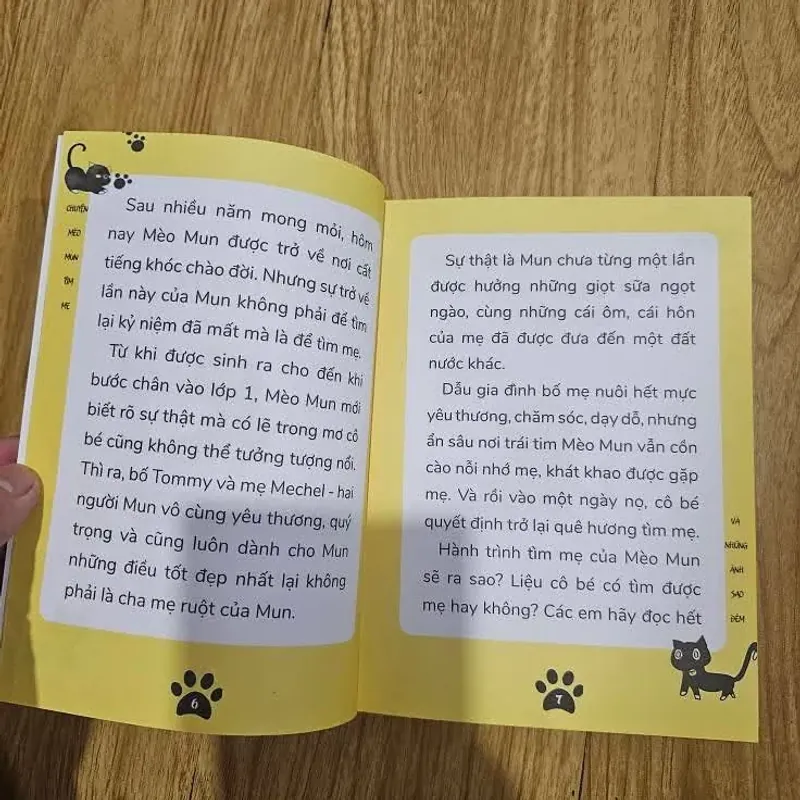 CHUYỆN
MÈO
MUN
TÌM
MẸ
Sau nhiều năm mong mỏi, hôm
nay Mèo Mun được trở về nơi cất
tiếng khóc chào đời. Nhưng sự trở về
lần này của Mun không phải để tìm
lại kỷ niệm đã mất mà là để tìm mẹ.
Từ khi được sinh ra cho đến khi
bước chân vào lớp 1, Mèo Mun mới
biết rõ sự thật mà có lẽ trong mơ cô
bé cũng không thể tưởng tượng nổi.
Thì ra, bố Tommy và mẹ Mechel - hai
người Mun vô cùng yêu thương, quý
trọng và cũng luôn dành cho Mun
những điều tốt đẹp nhất lại không
phải là cha mẹ ruột của Mun.
6
Sự thật là Mun chưa từng một lần
được hưởng những giọt sữa ngọt
ngào, cùng những cái ôm, cái hôn
của mẹ đã được đưa đến một đất
nước khác.
Dẫu gia đình bố mẹ nuôi hết mực
yêu thương, chăm sóc, dạy dỗ, nhưng
ẩn sâu nơi trái tim Mèo Mun vẫn cồn
cào nỗi nhớ mẹ, khát khao được gặp
mẹ. Và rồi vào một ngày nọ, cô bé
quyết định trở lại quê hương tìm mẹ.
Hành trình tìm mẹ của Mèo Mun
sẽ ra sao? Liệu cô bé có tìm được
mẹ hay không? Các em hãy đọc hết
VÀ
NHỮNG
ÁNH
SAO
ĐÊM
7